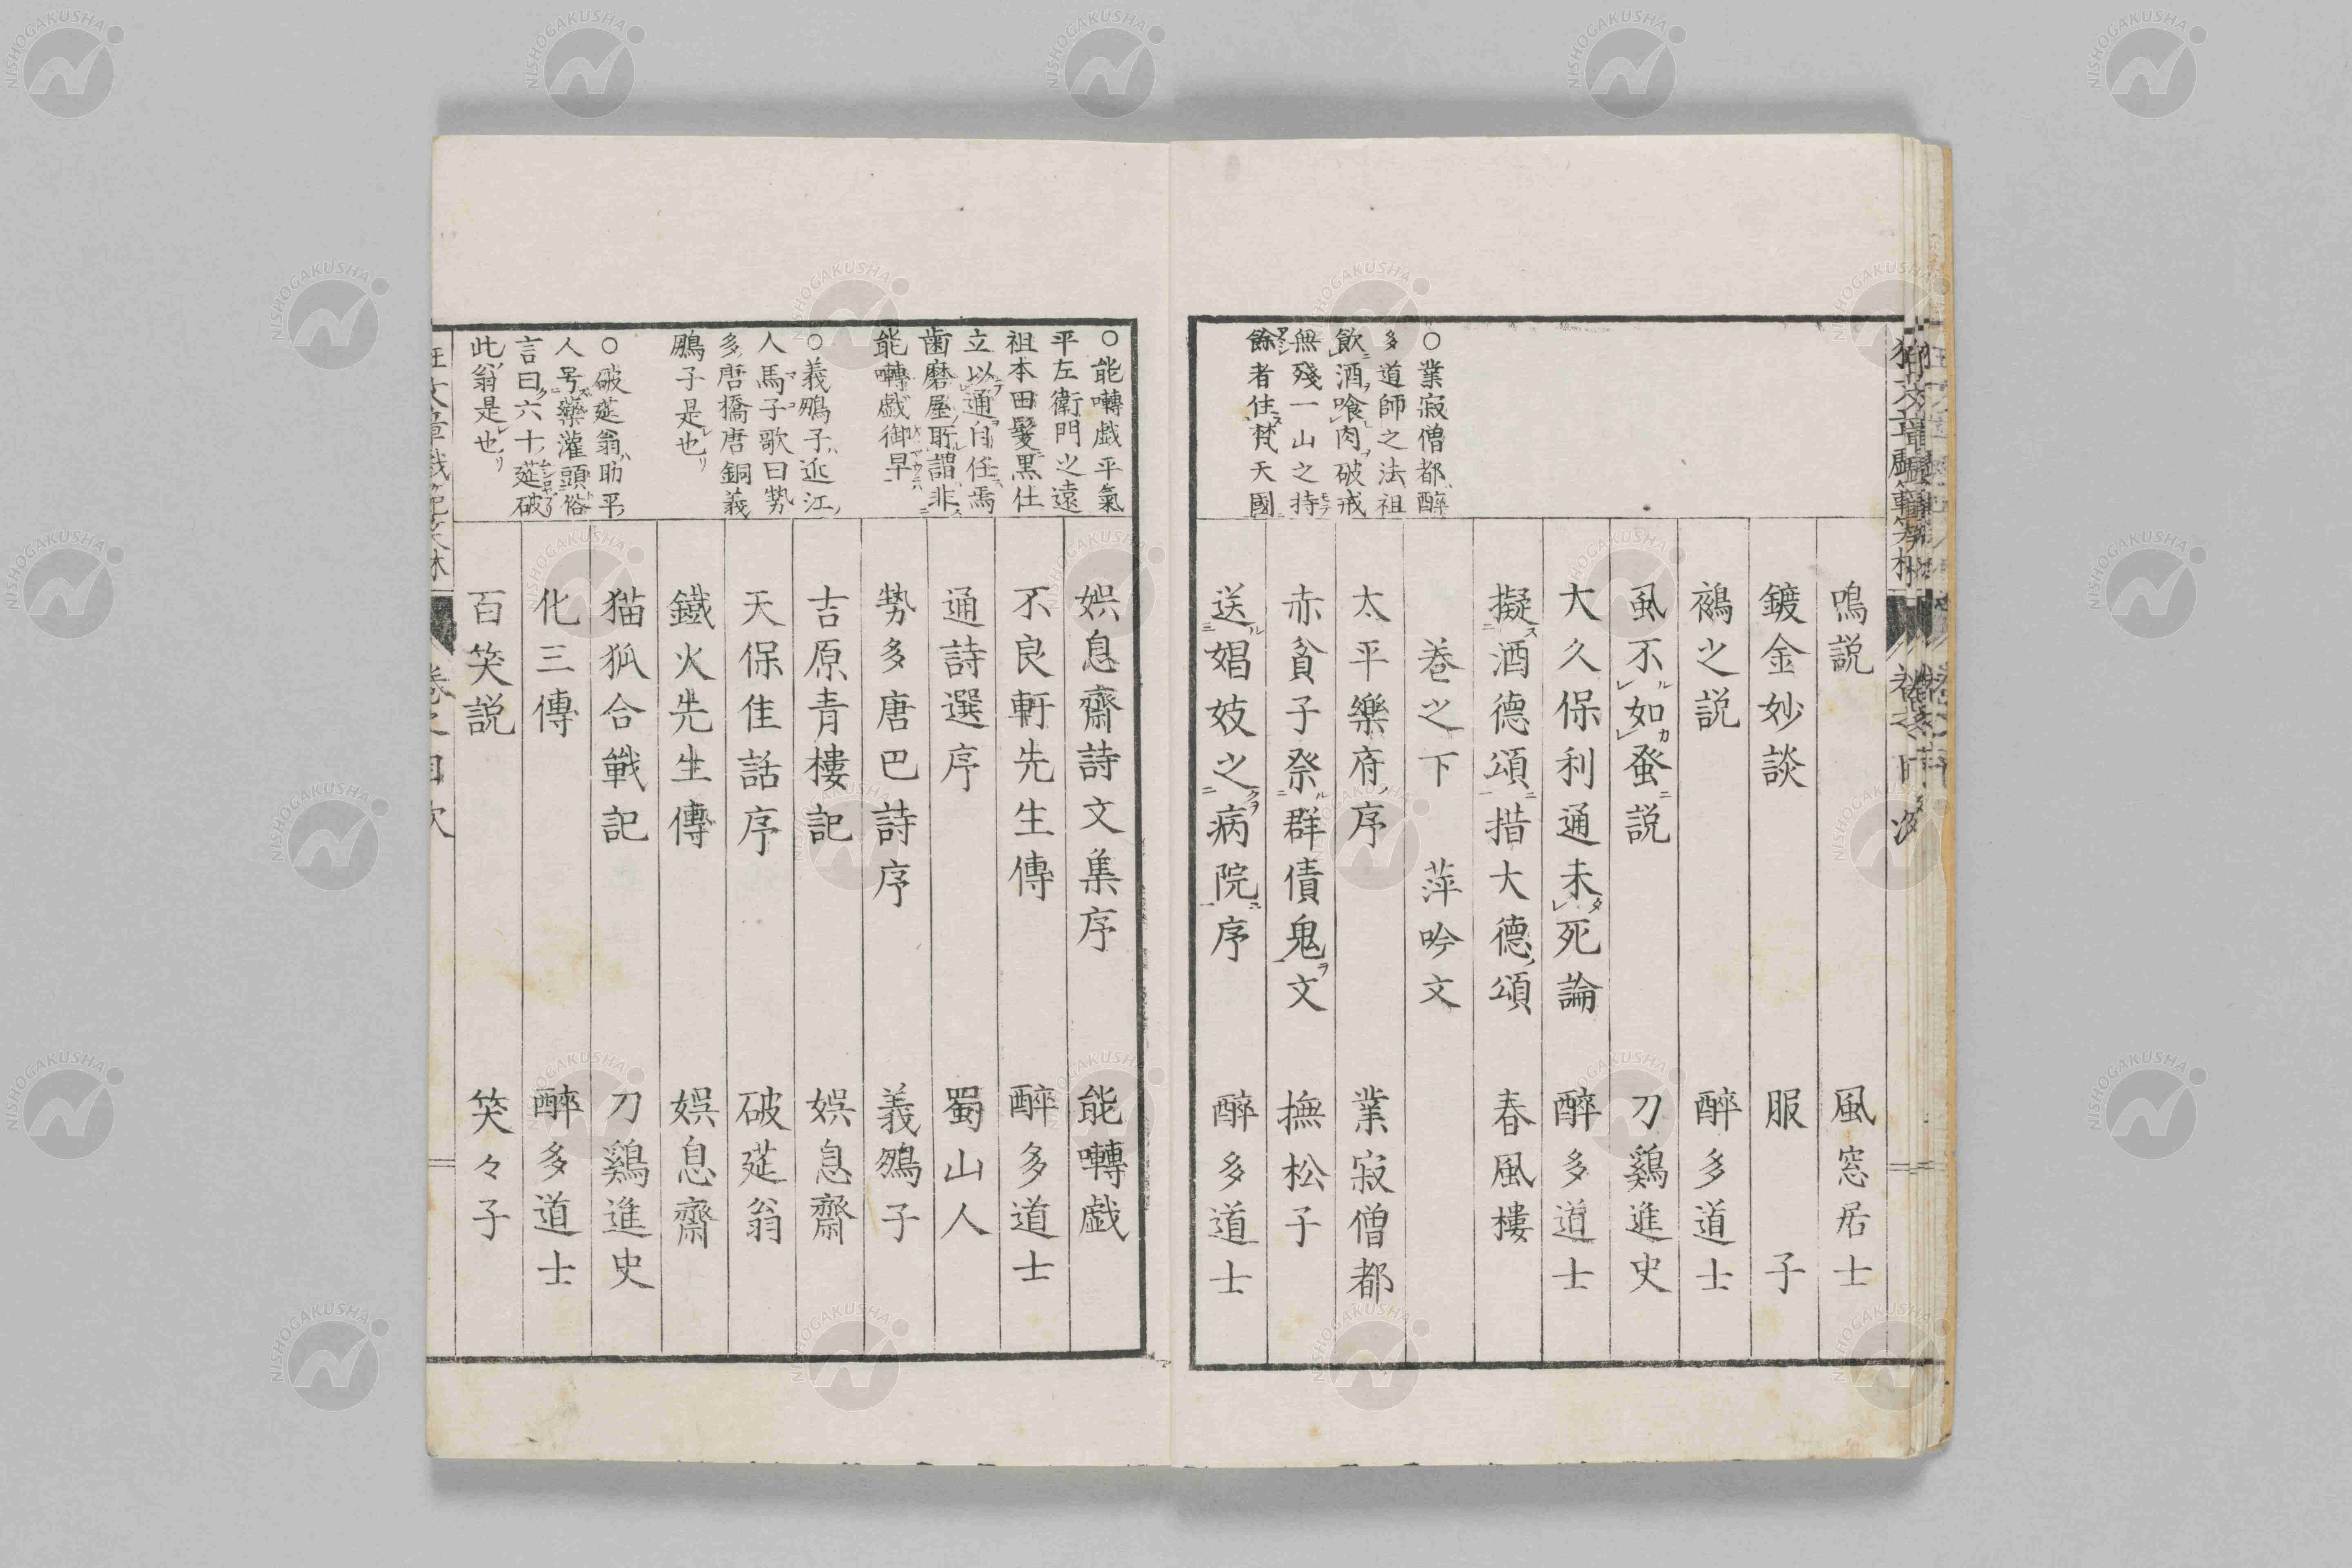 鳴説　風窓居士
鍍金妙談　服子
鵺之説　醉多道士
虱不如蚤説　刀鷄進史
大久保利通未死論　醉多道士
擬酒德頌措大德頌　春風樓
卷之下　萍吟文
太平樂府序　業寂僧都
赤貧子祭群債鬼文　撫松子
送娼妓之病院序　醉多道士
○業寂僧都醉
多道師之法祖
飲酒喰肉破戒
無殘一山之持
餘者住梵天國
娯息齋詩文集序　能囀戯
不良軒先生傳　醉多道士
通詩選序　蜀山人
勢多唐巴詩序　義鴉子
吉原青樓記　娯息齋
天保佳話序　破莚翁
鐵火先生傳　娯息齋
猫狐合戰記　刀鷄進史
化三傳　醉多道士
百笑説　笑々子
○能囀戯平氣
平左衛門之遠
祖本田髮黒仕
立以通自任焉
歯磨屋所謂非
能囀戯御早
○義鴉子近江
人馬子歌曰勢
多唐橋唐銅義
鴉子是也
○破莚翁助平
人号藥灌頭俗
言曰六十莚破
此翁是也
NISHOGAKUSHA